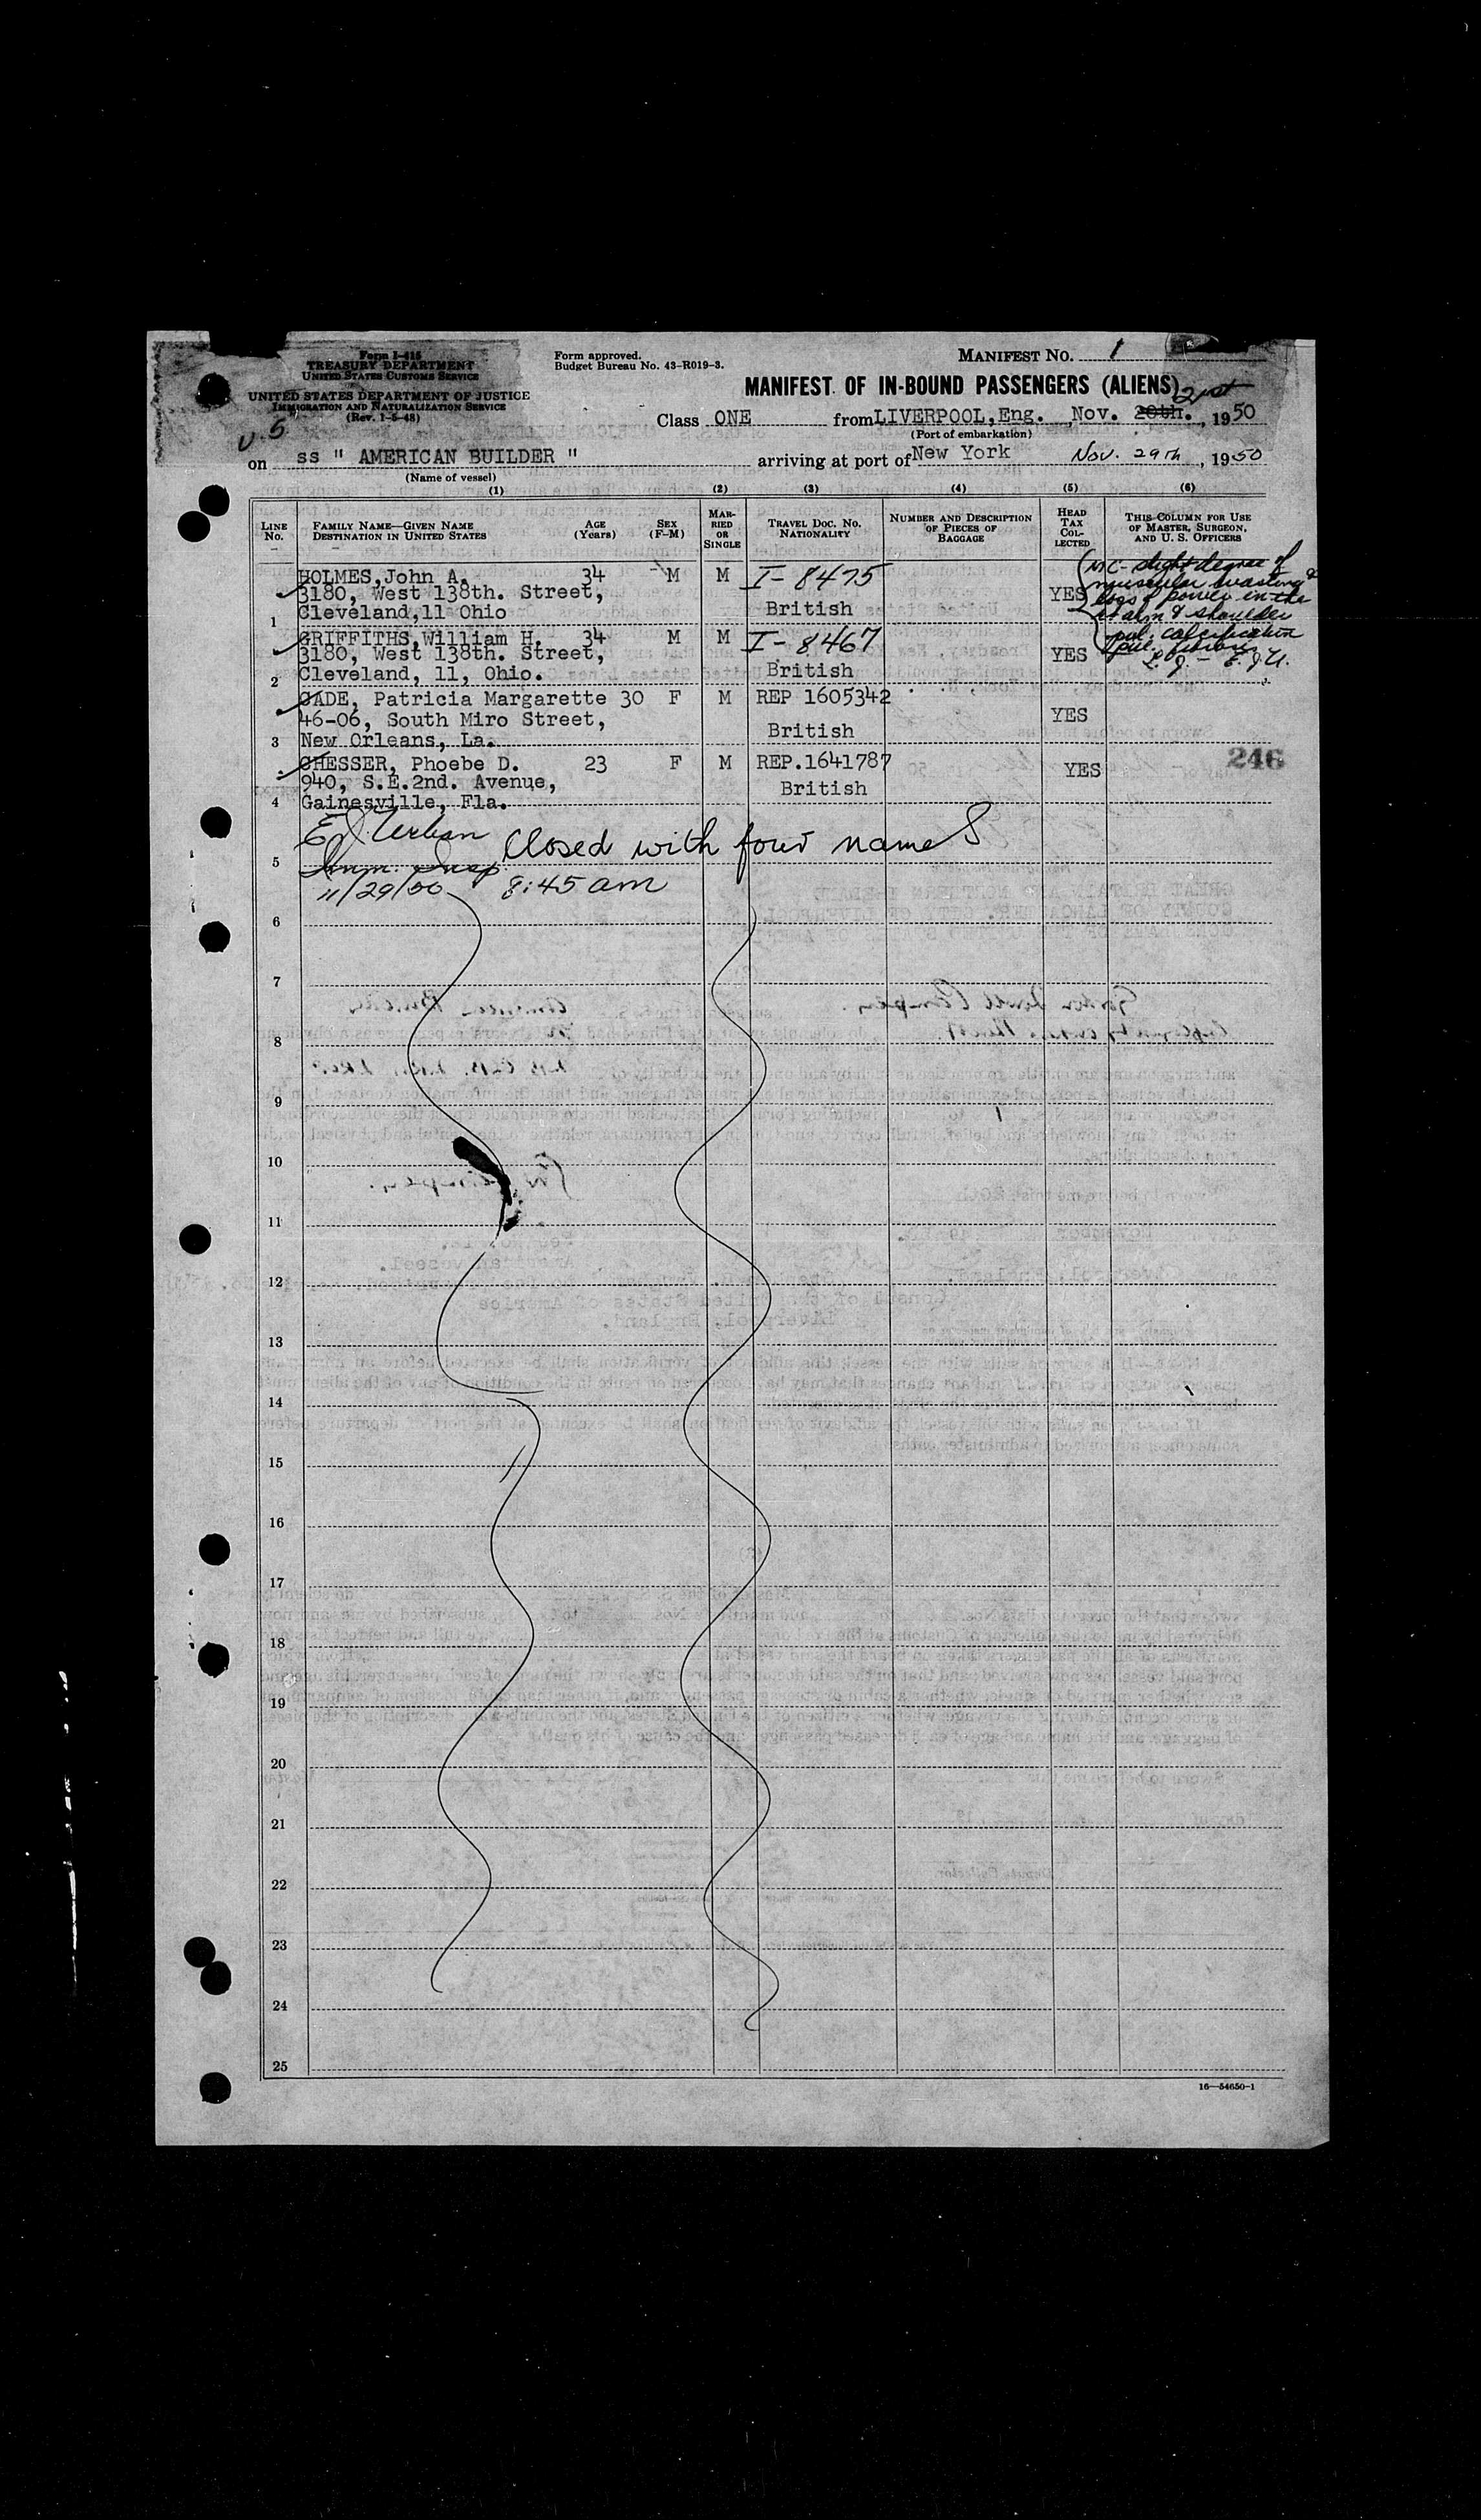 Form I-415
TREASURY DEPARTMENT
UNITED STATES CUSTOMS SERVICE
UNITED STATES DEPARTMENT OF JUSTICE
IMMIGRATION AND NATURALIZATION SERVICE
(Rev. 1-5-48)
Form approved.
Budget Bureau No. 43-R019-3.
MANIFEST NO. 1
MANIFEST OF IN-BOUND PASSENGERS (ALIENS)
21st
Class ONE from LIVERPOOL, Eng. , Nov. 20th. , 1950
(Port of embarkation)
on ss " AMERICAN BUILDER " arriving at port of New York Nov. 29th , 1950
(Name of vessel)
(1) (2) (3) (4) (5) (6)
LINE No. FAMILY NAME—GIVEN NAME DESTINATION IN UNITED STATES AGE (Years) SEX (F-M) MARRIED OR SINGLE TRAVEL DOC. NO. NATIONALITY NUMBER AND DESCRIPTION OF PIECES OF BAGGAGE HEAD TAX COLLECTED THIS COLUMN FOR USE OF MASTER, SURGEON, AND U. S. OFFICERS
HOLMES, John A. 34 M M I-8475 MC- slight degree of
3180, West 138th. Street, YES muscular wasting &
1 Cleveland, 11 Ohio British loss of power in the
arm & shoulder
GRIFFITHS, William H. 34 M M I-8467 pul. calcification
3180, West 138th. Street, YES pul. fibrosis
2 Cleveland, 11, Ohio. British E.J.U.
CADE, Patricia Margarette 30 F M REP 1605342
46-06, South Miro Street, YES
3 New Orleans, La. British
CHESSER, Phoebe D. 23 F M REP.1641787 YES 246
940, S.E.2nd. Avenue, British
4 Gainesville, Fla.
E J. Urban Closed with four names
5 Imm. Insp.
11/29/50 8:45 am
6
7
8
9
10
11
12
13
14
15
16
17
18
19
20
21
22
23
24
25
16—54650-1